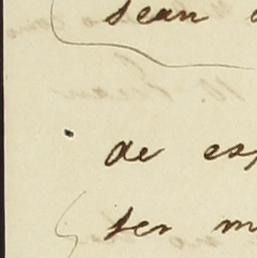 sean
de es
ser m